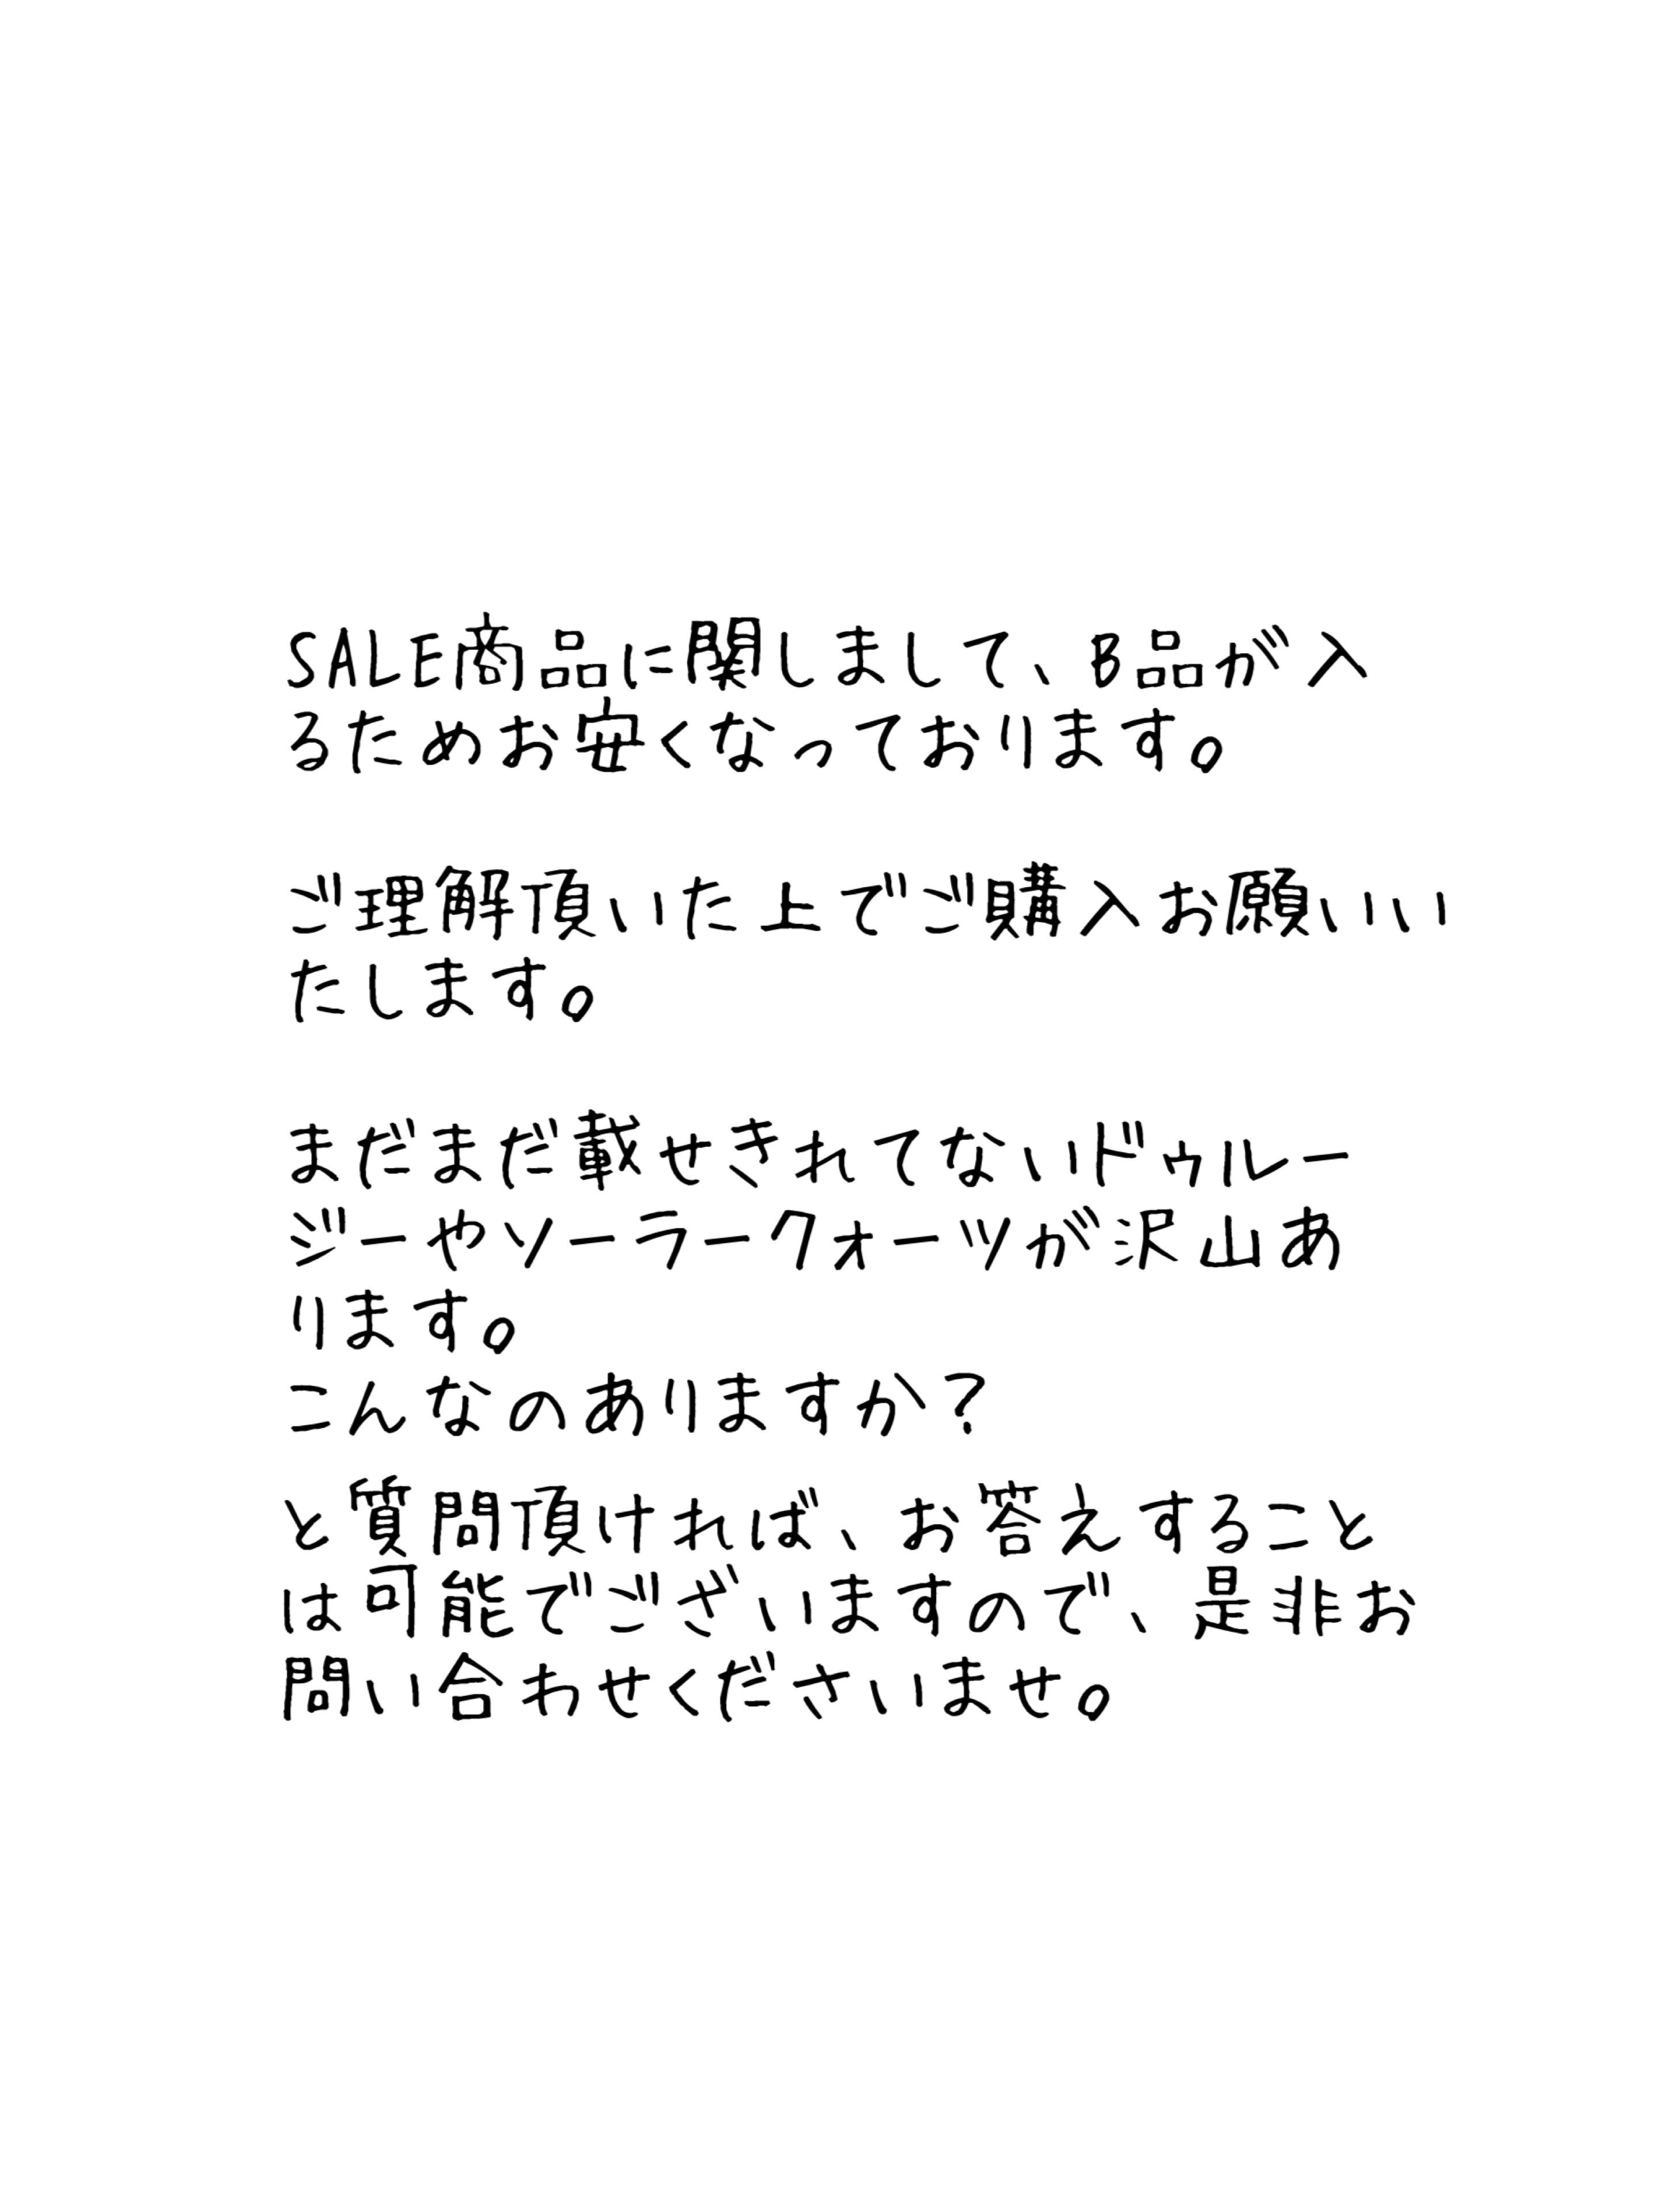 SALE商品に関しまして、B品が入
るためお安くなっております。
ご理解頂いた上でご購入お願いい
たします。
まだまだ載せきれてないドゥルー
ジーやソーラークォーツが沢山あ
ります。
こんなのありますか?
と質問頂ければ、お答えすること
は可能でございますので、是非お
問い合わせくださいませ。